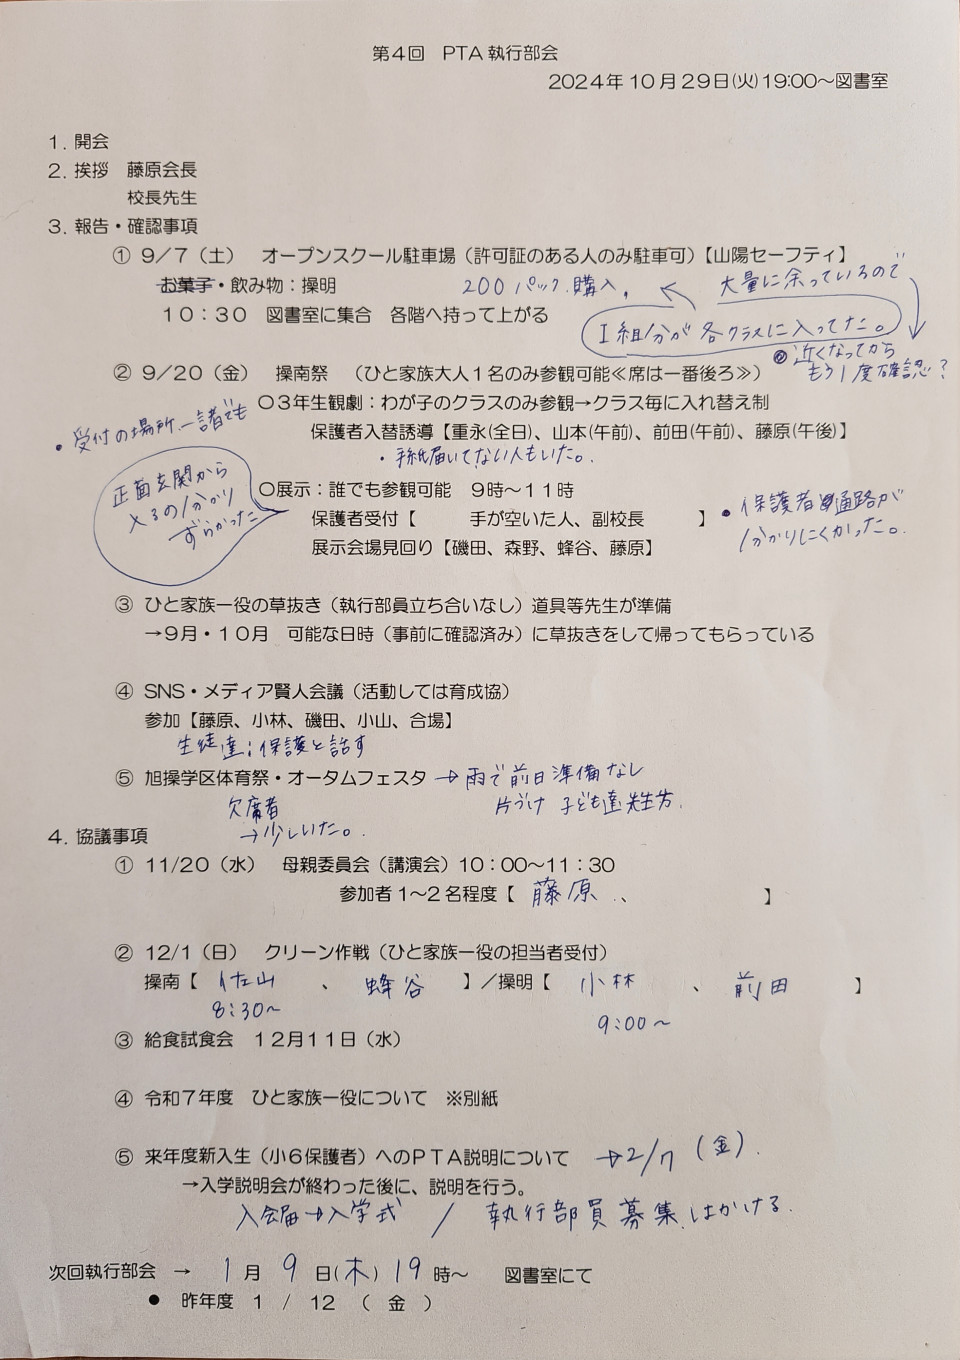 第4回　PTA執行部会
2024年10月29日(火)19:00～図書室
1. 開会
2. 挨拶　藤原会長
校長先生
3. 報告・確認事項
① 9/7（土）　オープンスクール駐車場（許可証のある人のみ駐車可）【山陽セーフティ】
お菓子・飲み物：操明　200パック購入。　大量に余っているので
10：30　図書室に集合　各階へ持って上がる
1組分が各クラスに入ってた。
◎近くなってから
もう1度確認？
② 9/20（金）　操南祭　（ひと家族大人1名のみ参観可能≪席は一番後ろ≫）
・受付の場所、一諸でも
○3年生観劇：わが子のクラスのみ参観→クラス毎に入れ替え制
保護者入替誘導【重永(全日)、山本(午前)、前田(午前)、藤原(午後)】
・手紙届いてない人もいた。
正面玄関から
入るの分かり
ずらかった
○展示：誰でも参観可能　9時～11時
保護者受付【　手が空いた人、副校長　】
展示会場見回り【磯田、森野、蜂谷、藤原】
・保護者通路が
分かりにくかった。
③ ひと家族一役の草抜き（執行部員立ち合いなし）道具等先生が準備
→9月・10月　可能な日時（事前に確認済み）に草抜きをして帰ってもらっている
④ SNS・メディア賢人会議（活動しては育成協）
参加【藤原、小林、磯田、小山、合場】
生徒達：保護と話す
⑤ 旭操学区体育祭・オータムフェスタ → 雨で前日準備なし
片づけ 子ども達先生方.
欠席者
→少しいた。
4. 協議事項
① 11/20（水）　母親委員会（講演会）10：00～11：30
参加者1～2名程度【　藤原　、　】
② 12/1（日）　クリーン作戦（ひと家族一役の担当者受付）
操南【　佐山　、　蜂谷　】／操明【　小林　、　前田　】
8:30～
9:00～
③ 給食試食会　12月11日（水）
④ 令和7年度　ひと家族一役について　※別紙
⑤ 来年度新入生（小6保護者）へのPTA説明について　→2/7（金）.
→入学説明会が終わった後に、説明を行う。
入会届→入学式 / 執行部員募集はかける.
次回執行部会　→　1月9日(木)19時～　図書室にて
● 昨年度　1　/　12　(　金　)